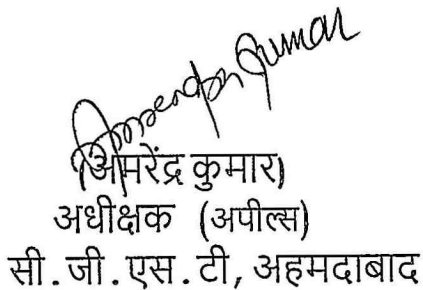 Amrendra Kumar
(अमरेंद्र कुमार)
अधीक्षक (अपील्स)
सी.जी.एस.टी, अहमदाबाद